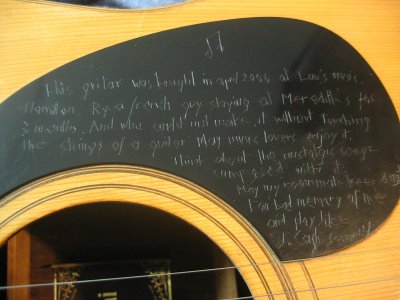 This guitar was bought in april 2044 at Lou's music.
Hamilton. By a french guy staying at Meredith's for
3 months. And who could not make it without touching
the strings of a guitar May music lovers enjoy it.
Think about the nostalgic songs
composed with it
May my roommate keep
memory of me
and play like